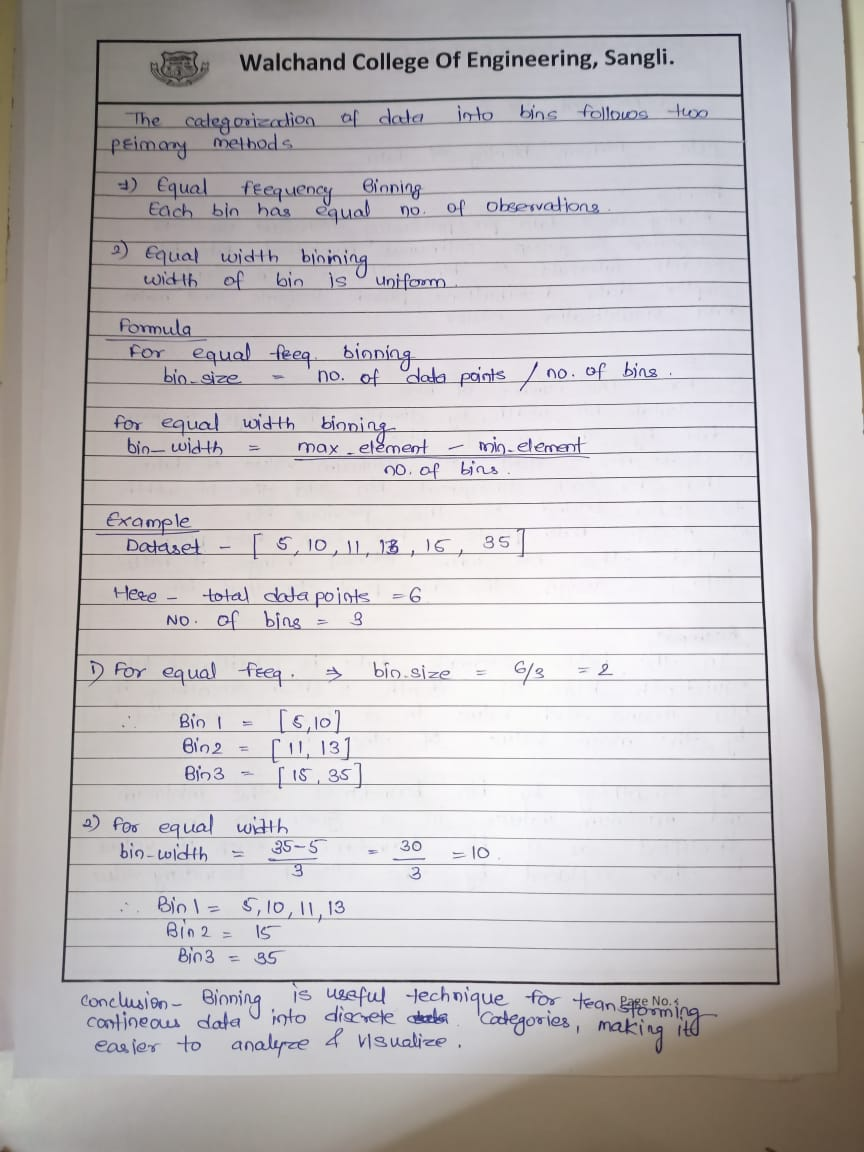 Walchand College Of Engineering, Sangli.
The categorization of data into bins follows two
primary methods
1) Equal frequency Binning
Each bin has equal no. of observations.
2) Equal width binining
width of bin is uniform.
Formula
For equal freq. binning
bin-size = no. of data points / no. of bins.
for equal width binning
bin-width = max-element - min-element
no. of bins.
Example
Dataset - [ 5, 10, 11, 13, 15, 35 ]
Here - total data points = 6
No. of bins = 3
1) For equal freq. ⇒ bin-size = 6/3 = 2
∴ Bin 1 = [5, 10]
Bin 2 = [11, 13]
Bin 3 = [15, 35]
2) for equal width
bin-width = 35-5 / 3 = 30 / 3 = 10.
∴ Bin 1 = 5, 10, 11, 13
Bin 2 = 15
Bin 3 = 35
Page No.:
Conclusion - Binning is useful technique for transforming
contineous data into discrete categories, making it
easier to analyze & visualize.